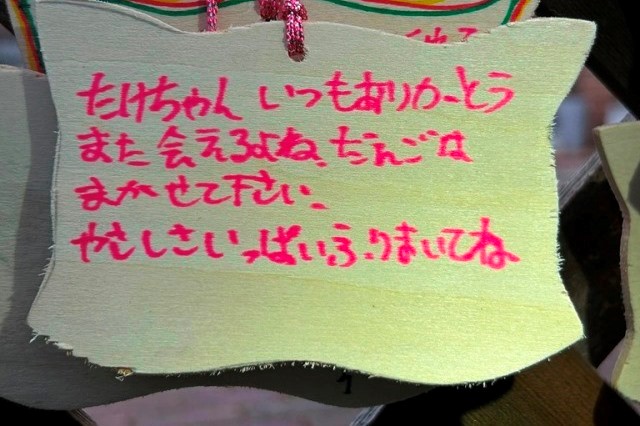 たけちゃん いつもありがとう
また会えるよね、だんごは
まかせて下さい。
やさしさいっぱいふりまいてね